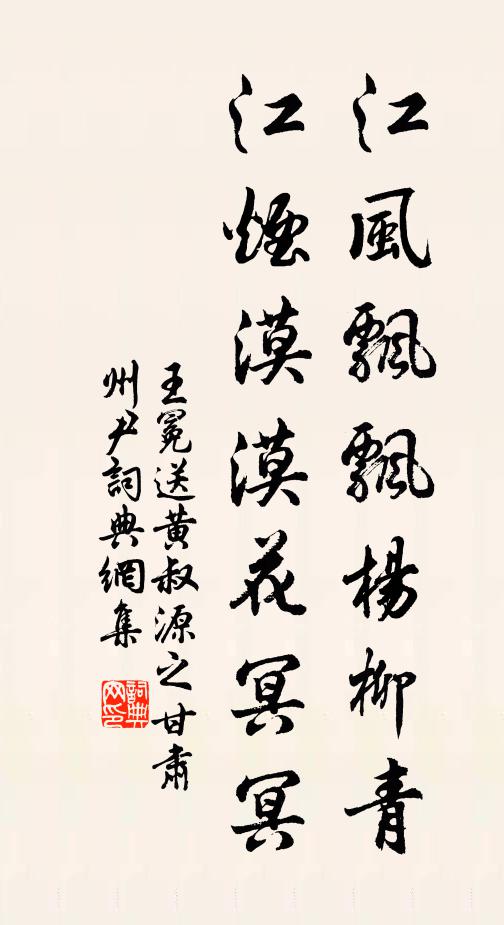 江風飄飄楊柳青
江煙漠漠花冥冥
王冕送黄叔源之甘肅
州尹詞典網集
詞典
网印